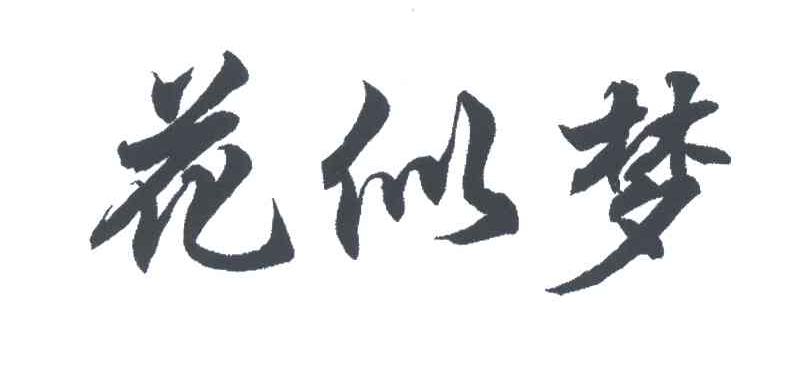 花似梦